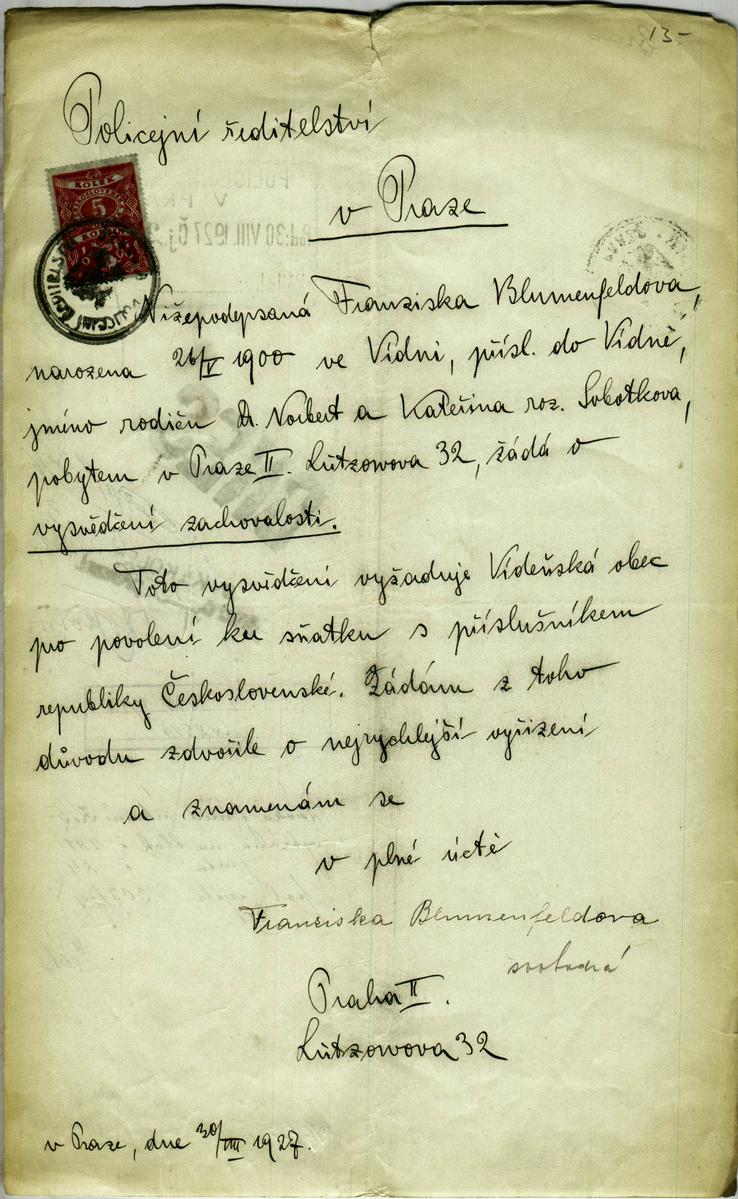 13-
Policejní ředitelství
v Praze
KOLEK
5
Nížepodepsaná Franziska Blumenfeldova,
narozena 26/V 1900 ve Vídni, přísl. do Vídně,
jméno rodičů Dr. Norbert a Kateřina roz. Sobotkova,
pobytem v Praze II. Lützowova 32, žádá o
vysvědčení zachovalosti.
Toto vysvědčení vyžaduje Vídeňská obec
pro povolení ku sňatku s příslušníkem
republiky Československé. Žádám z toho
důvodu zdvořile o nejrychlejší vyřízení
a znamenám se
v plné úctě
Franziska Blumenfeldova
svobodná
Praha II.
Lützowova 32
v Praze, dne 30/VIII 1927.